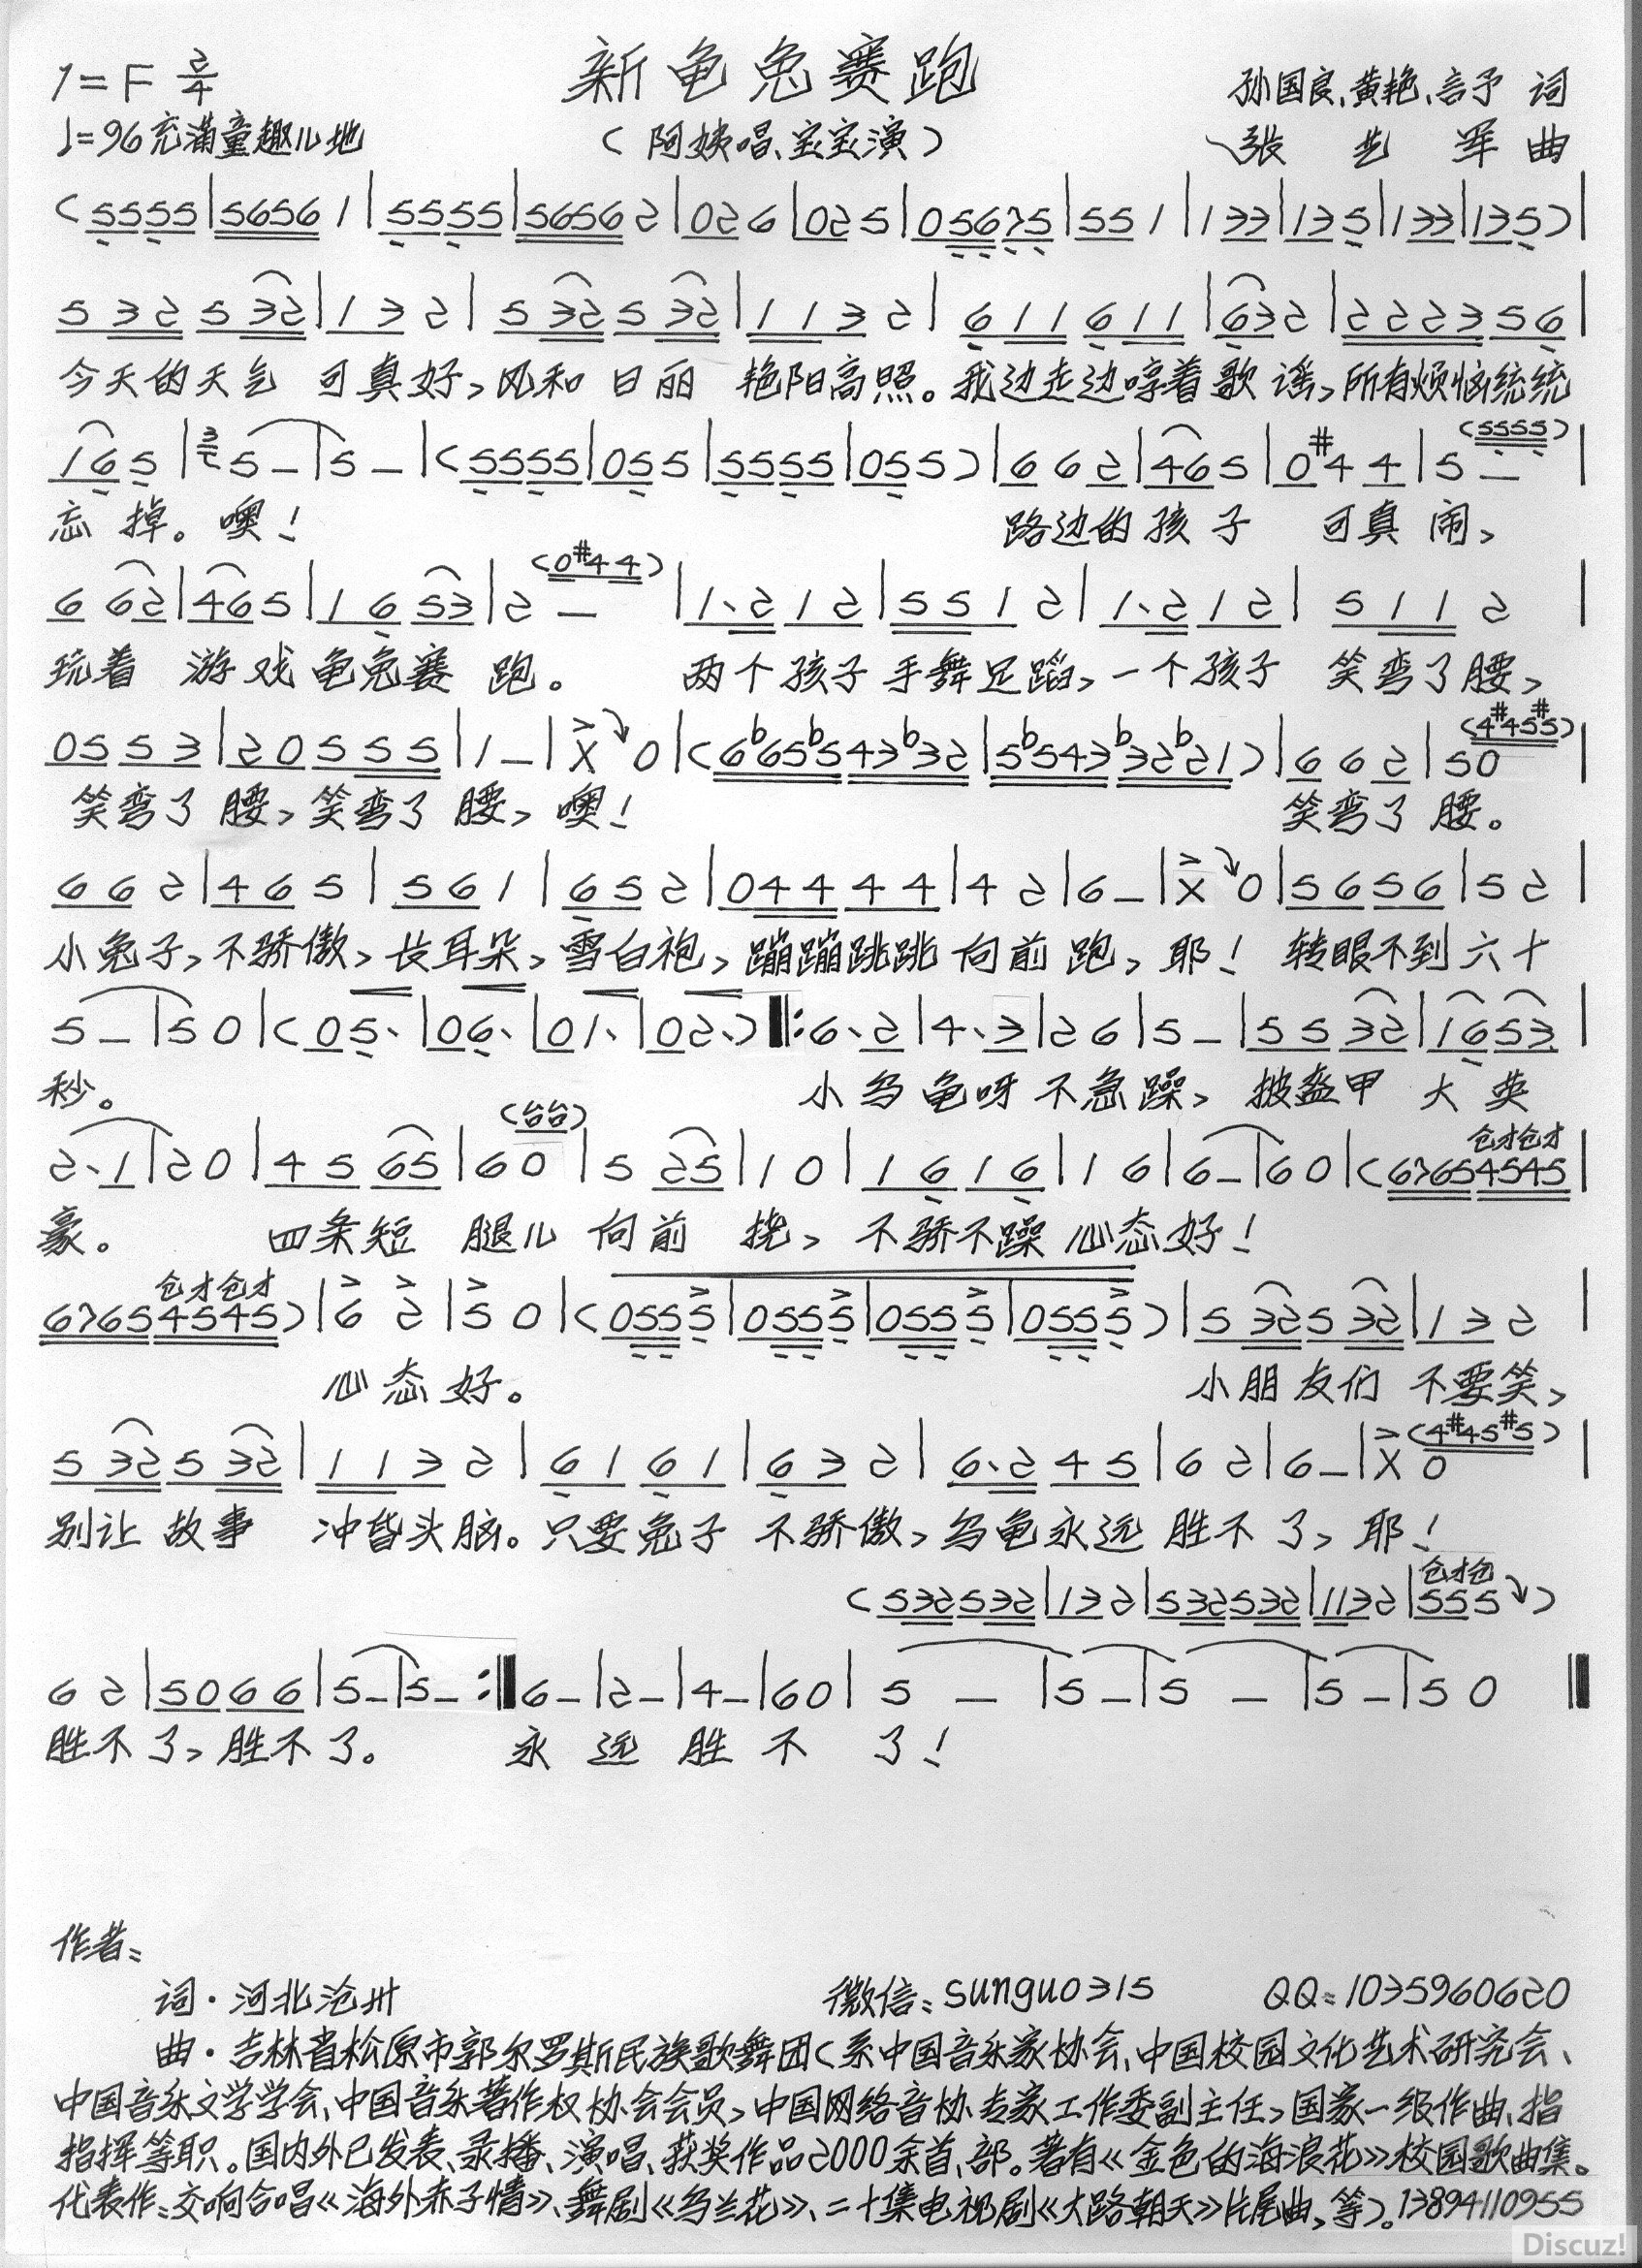 1=F 2/4
新龟兔赛跑
孙国良、黄艳、言予 词
♩=96 充满童趣儿地
(阿姨唱、宝宝演)
张 军 曲
(5555|56561|5555|56562|026|025|05675|551|133|135|133|135)|
532532|132|532532|1132|611611|632|222356|
今天的天气 可真好,风和日丽 艳阳高照。我边走边哼着歌谣,所有烦恼统统
165|35–|5–|(5555|055|5555|055)|662|465|0#44|5–(5555)|
忘掉。噢! 路边的孩子 可真闹、
662|465|1653|2–(0#44)|1·212|5512|1·212|5112|
玩着 游戏龟兔赛 跑。 两个孩子手舞足蹈,一个孩子 笑弯了腰,
0553|20555|1–|X0|(6b65b543b32|5b543b32b21)|662|50(4#45#5)|
笑弯了 腰,笑弯了 腰,噢! 笑弯了 腰。
662|465|561|652|04444|42|6–|X0|5656|52|
小兔子,不骄傲,长耳朵,雪白袍,蹦蹦跳跳 向前跑,耶! 转眼不到六十
5–|50|(05·|06·|01·|02·)‖:6·2|4·3|26|5–|5532|1653|
秒。 小乌龟呀不急躁、 披盔甲 大 英
2·1|20|4565|60(台台)|525|10|1616|16|6–|60|(67654545仓才仓才|
豪。 四条短 腿儿 向前 挠, 不骄不躁 心态好!
67654545仓才仓才)|62|50|(0555|0555|0555|0555)|532532|132|
心态好。 小朋友们 不要笑,
532532|1132|6161|632|6·245|62|6–|X0(4#45#5)|
别让故事 冲昏头脑。只要兔子 不骄傲,乌龟永远 胜不了,耶!
(532532|132|532532|1132|555仓才仓)
62|5066|5–|5–:‖6–|2–|4–|60|5–|5–|5–|5–|50‖
胜不了,胜不了。 永远胜不 了!
作者:
词·河北沧州 微信:sunguo315 QQ:1035960620
曲·吉林省松原市郭尔罗斯民族歌舞团(系中国音乐家协会、中国校园文化艺术研究会、
中国音乐文学学会、中国音乐著作权协会会员,中国网络音协专家工作委副主任,国家一级作曲、指
指挥等职。国内外已发表、录播、演唱、获奖作品2000余首、部。著有《金色的海浪花》校园歌曲集。
代表作:交响合唱《海外赤子情》、舞剧《乌兰花》、二十集电视剧《大路朝天》片尾曲,等)。13894110955
Discuz!